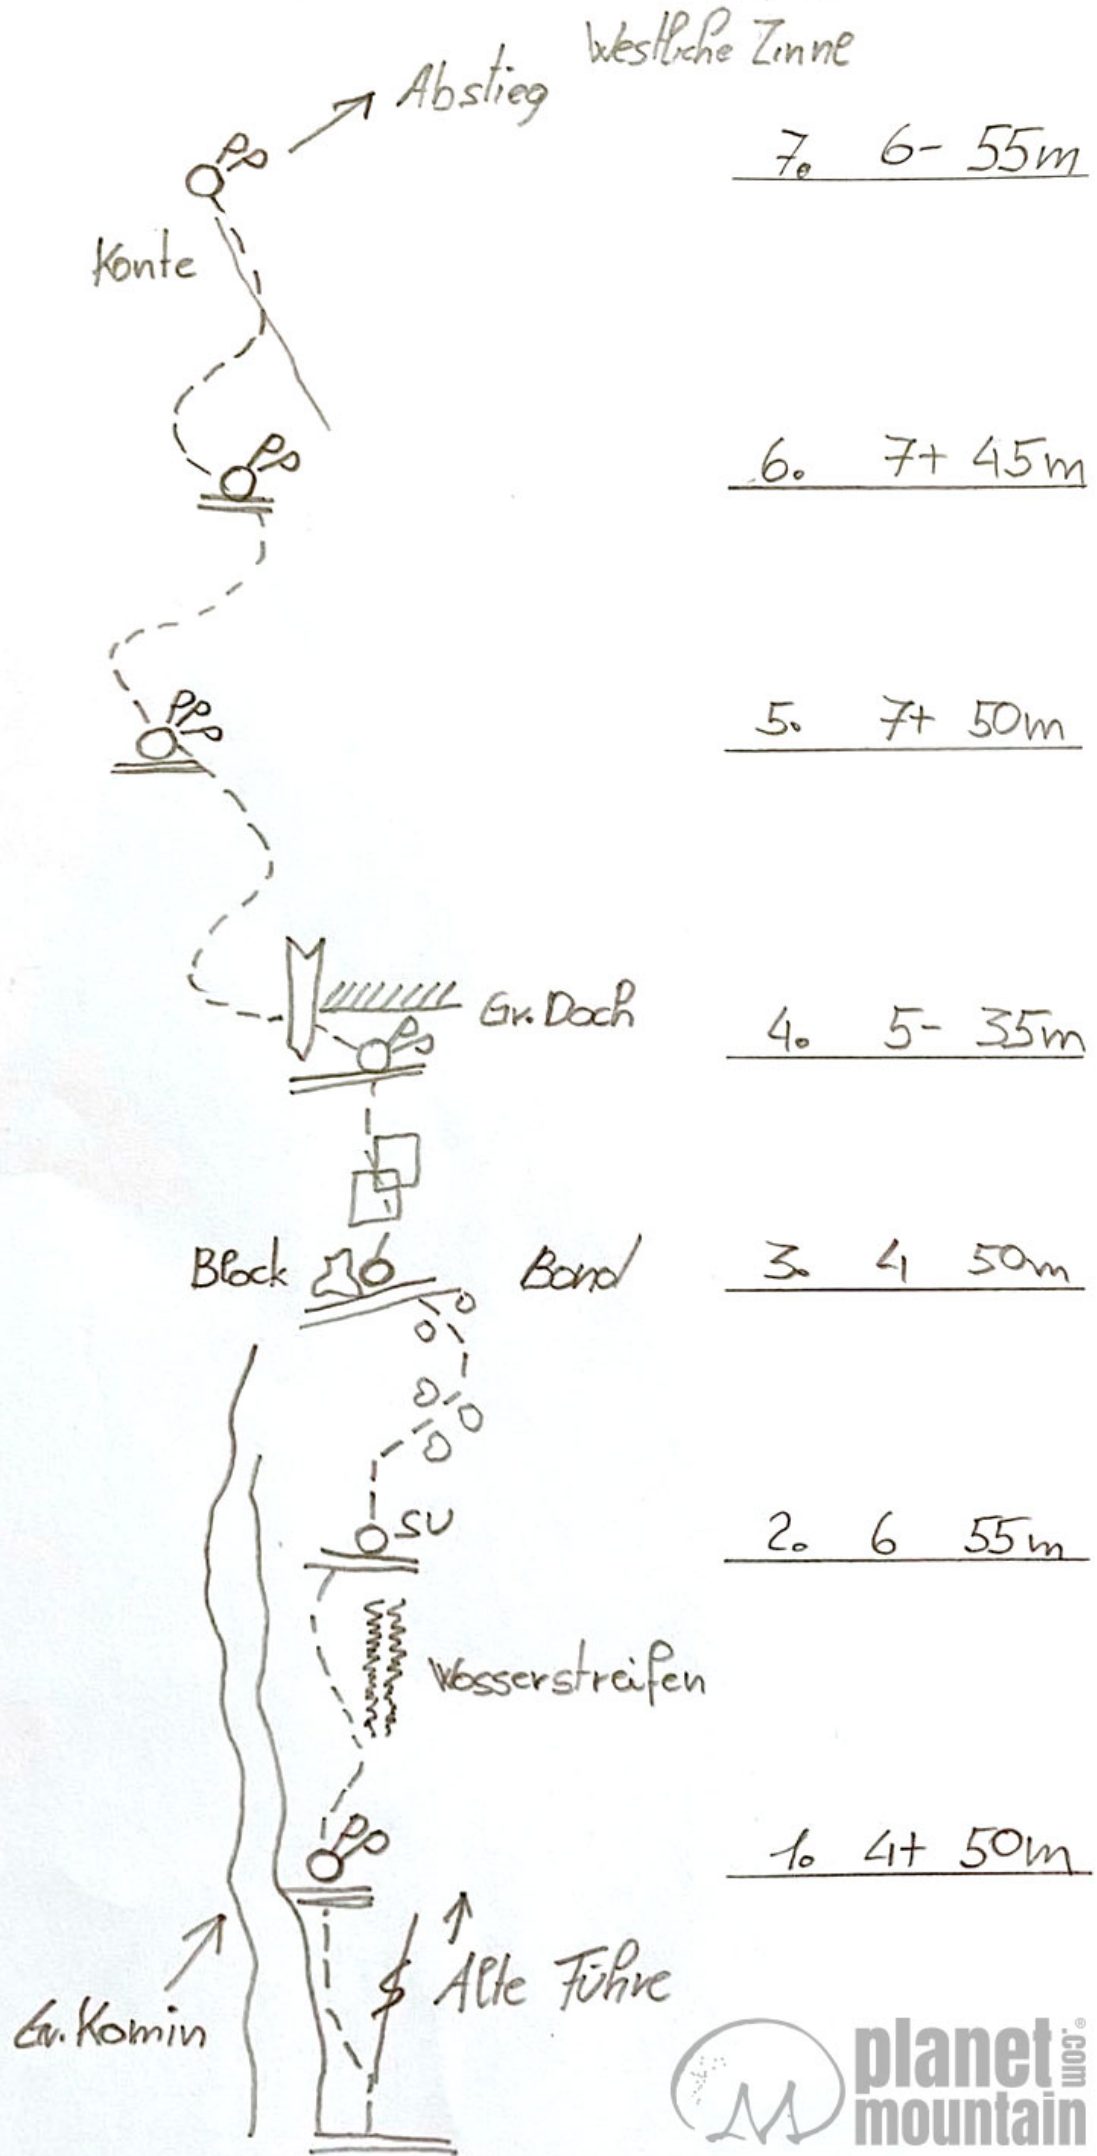 Westliche Zinne
Abstieg
7. 6- 55m
PP
Kante
6. 7+ 45m
PP
5. 7+ 50m
PPP
Gr. Dach
4. 5- 35m
PP
Block
Band
3. 4 50m
2. 6 55m
SU
Wasserstreifen
1. 4+ 50m
PP
Alte Führe
Gr. Kamin
planet
mountain
.com
®